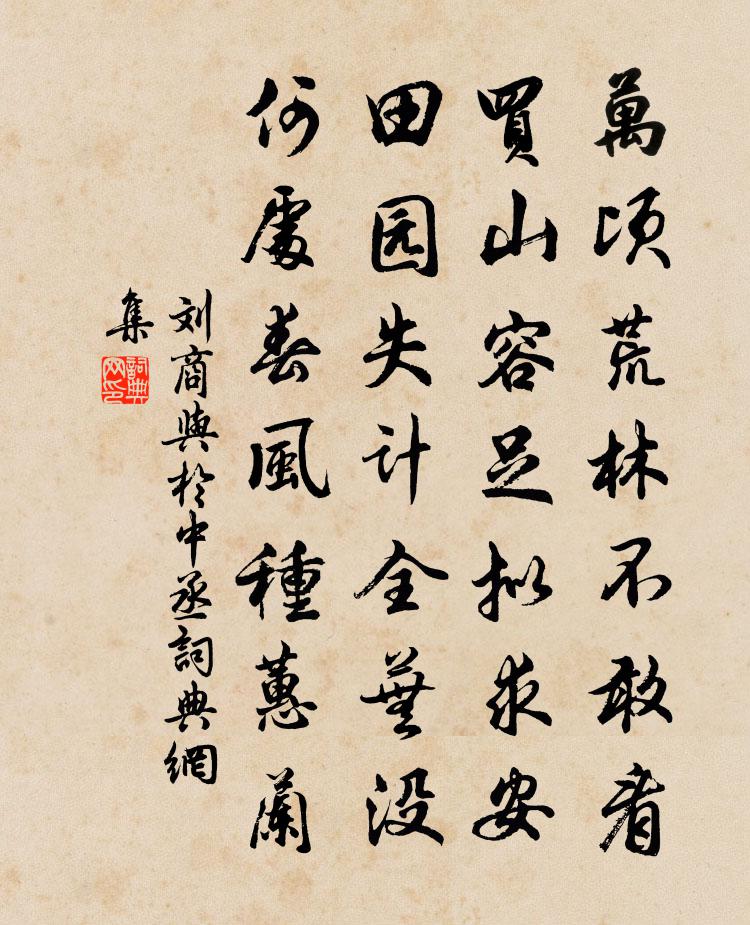 萬顷荒林不敢看
買山容足拟求安
田园失计全蕪没
何處春風種蕙蘭
刘商與於中丞詞典網
集
詞典
网印